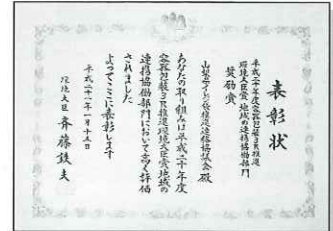 表彰状
平成二十年度容器包装3R推進
環境大臣賞 地域の連携協働部門
奨励賞
山梨マイバッグ推進連絡協議会 殿
あなたの取り組みは平成二十年度
容器包装3R推進環境大臣賞地域の
連携協働部門において高く評価
されました
よってここに表彰します
平成二十一年一月十五日
環境大臣 斉藤鉄夫